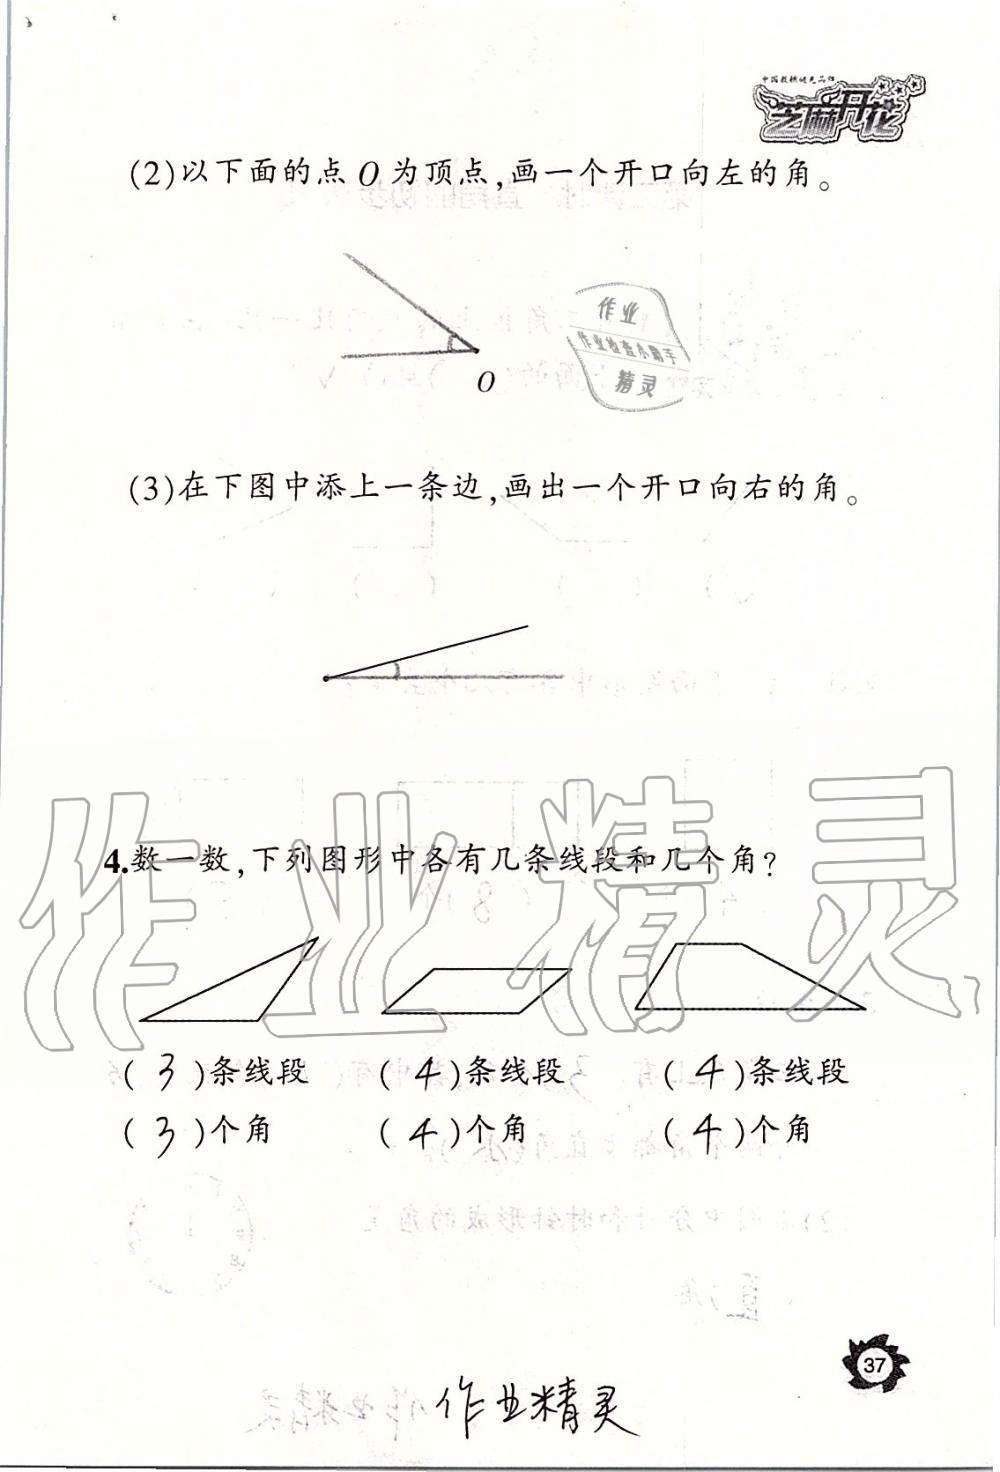 中国教辅领先品牌
芝麻开花
(2)以下面的点 O 为顶点,画一个开口向左的角。
作业
作业检查小助手
精灵
O
(3)在下图中添上一条边,画出一个开口向右的角。
作业精灵
4.数一数,下列图形中各有几条线段和几个角?
( 3 )条线段 ( 4 )条线段 ( 4 )条线段
( 3 )个角 ( 4 )个角 ( 4 )个角
37
作业精灵